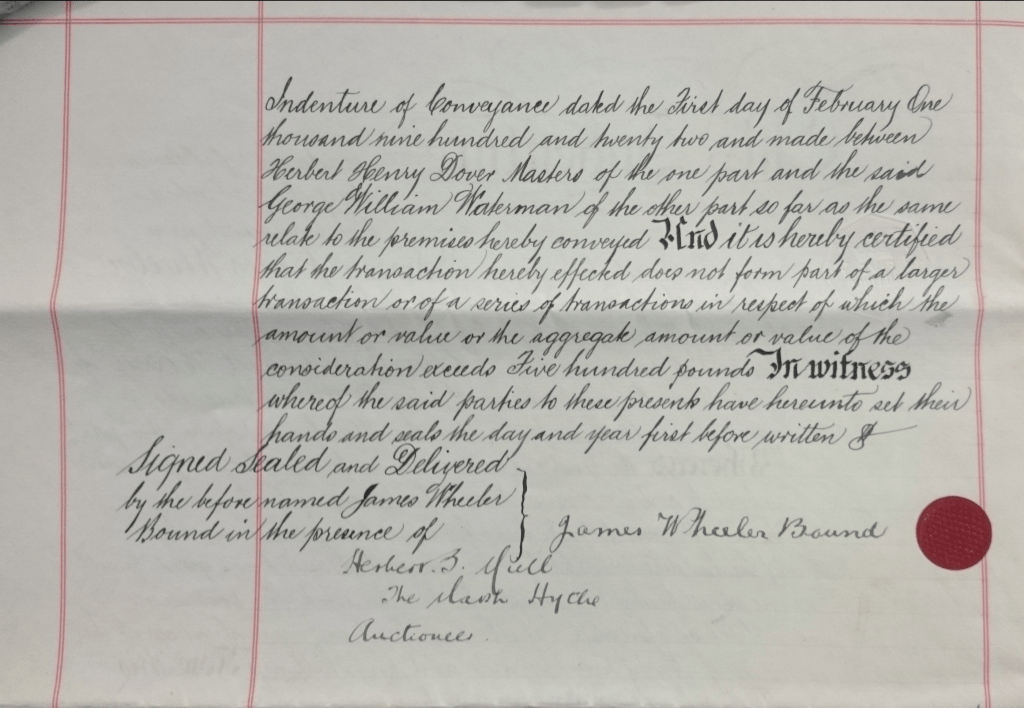 Indenture of Conveyance dated the First day of February One
thousand nine hundred and twenty two and made between
Herbert Henry Dover Masters of the one part and the said
George William Waterman of the other part so far as the same
relate to the premises hereby conveyed And it is hereby certified
that the transaction hereby effected does not form part of a larger
transaction or of a series of transactions in respect of which the
amount or value or the aggregate amount or value of the
consideration exceeds Five hundred pounds In witness
whereof the said parties to these presents have hereunto set their
hands and seals the day and year first before written
Signed Sealed and Delivered
by the before named James Wheeler
Bound in the presence of
James Wheeler Bound
Herbert
The Hythe
Auctioneer.